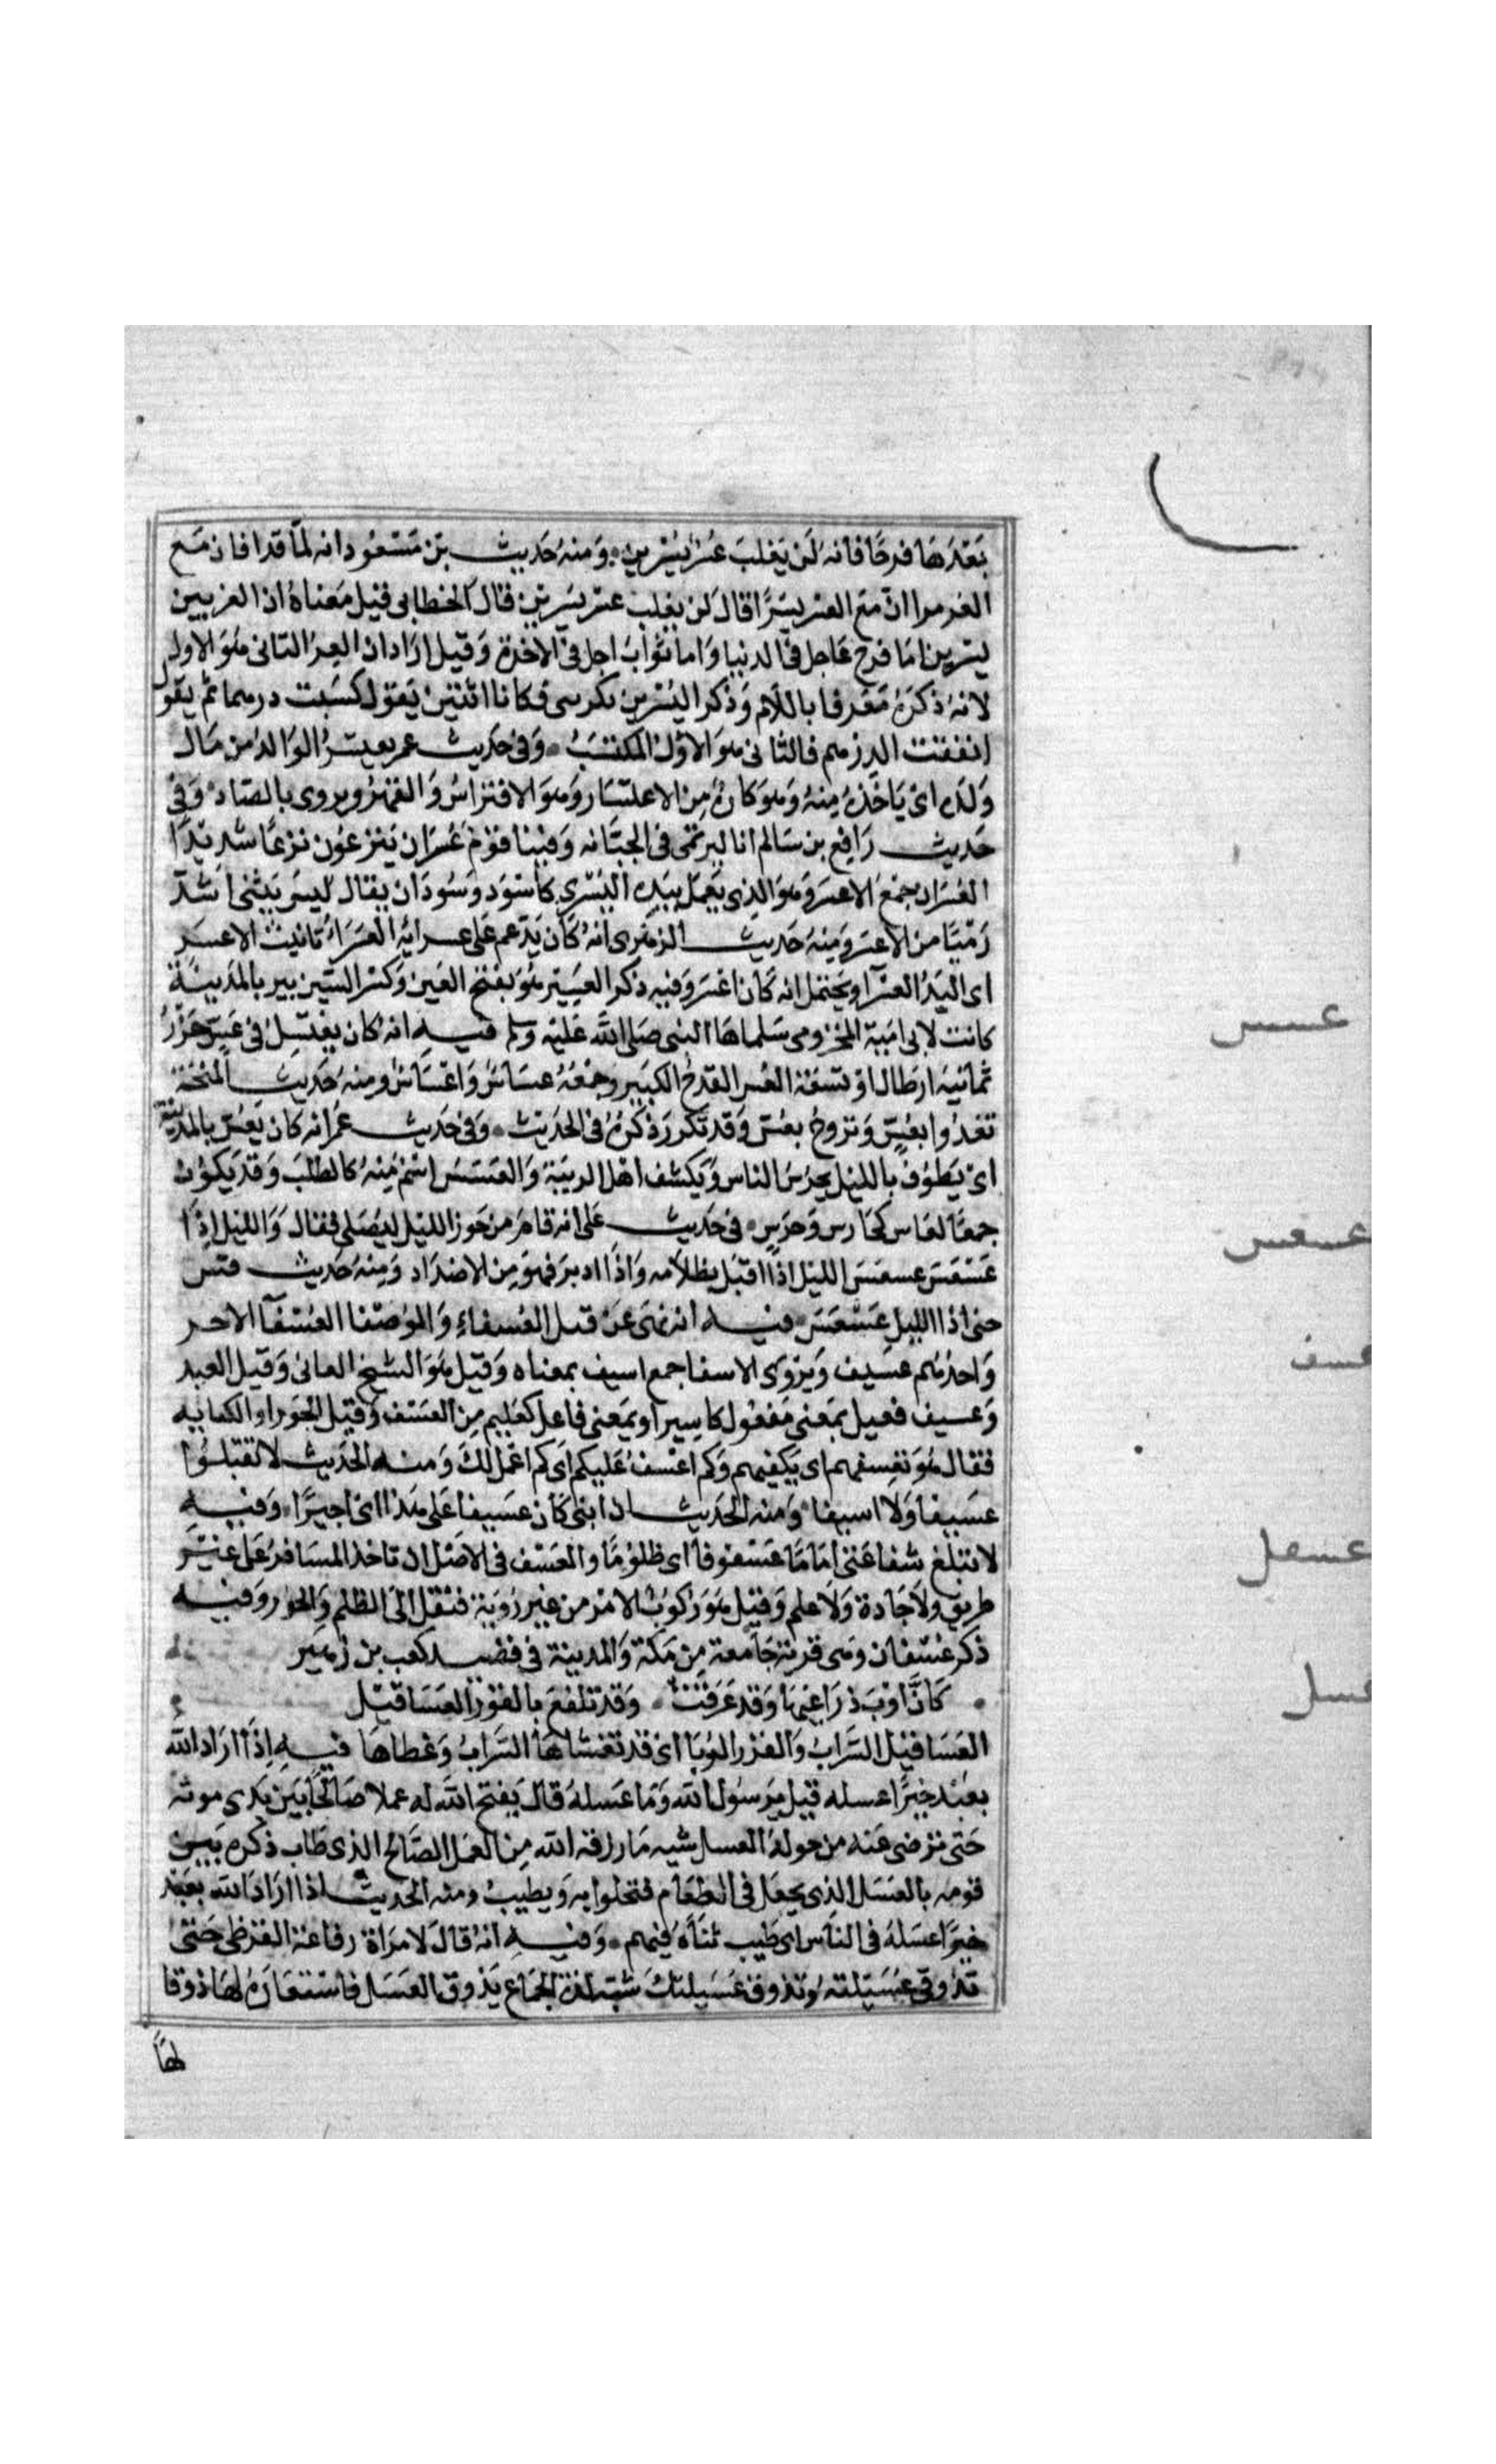 بَعْدَهَا فرجًا فانه لَن يَغلبَ عُسْرٌ يُسْرَينِ ۰ وَمنهُ حَديث بن مَسْعُود انه لمَّا قرا فان مَع
العُسر يسرا انّ مَع العسر يسرًا قالَ لن يغلب عسر يسرين قال الخطابى قيل مَعناهُ ان العر بين
يسرين امَا فرج عَاجل فى الدنيا وَاما ثوابُ اجل فى الاخرة وَقيل ارَاد ان العسر الثانى هوَ الاول
لانهُ ذكرَهُ مَعَرفا باللام وَذكر اليُسْرين نكر فكانا اثنين يَقول كسَبت درهما ثم يقول
انفقت الدرهم فالثانى هوَ الاوّل المكتسَبُ ۰ وَفى حَديث عمر يعتسرُ الوَالدُ من مَال
وَلَده اىْ يَاخُذهُ مِنهُ وَهوَ كارهٌ مِن الاعتسَار وَهوَ الافتراسُ وَالقهرُ ويروى بالصَاد وَفى
حَديث رَافع بن سَالم انا لنرتمى فى الجبّانه وَفينا قوم عُسران يَنزعُون نزعًا شديدًا
العُسرَان جمعُ الاعسر وَهوَ الذى يَعمل بيَده اليُسْرى كاسْوَد وَسُودَان يقال ليسَ شئ اشَدّ
رَميًا من الاعسَر وَمِنهُ حَديث الزهرى انهُ كَان يَدّعم عَلى عسرائه العَسَرَاءُ تانيث الاعسَر
اى اليَدُ العسرآ ويحتمل انه كَان اعْسَرَ وَفيه ذكر العَسِير هُوَ بفتح العَين وَكسْر السّين بير بالمَدينَة
كانت لابى اميَة المخزومى سَلماهَا النبى صَلى الله عَليْه وَسلم فيه انه كان يغتسِلُ فى عُسٍّ حَزْرُ
ثمانية ارطال اوْ تسعَة العُس القدحُ الكبير وَجمعُه عسَاسٌ وَاعْسَاسٌ ومنهُ حَديث المنْحَة
تغدُوا بعُسٍّ وَتروحُ بعُسّ وَقد تكرر ذكرُهُ فى الحَديث ۰ وَفى حَديث عمَر انه كان يَعُسّ بالمَدينة
اىْ يَطوُفُ بالليْل يحرُسُ الناس وَيكشفُ اهْل الريبَة وَالعَسَسُ اسْم مِنهُ كالطلَب وَقد يَكوُن
جمعًا لعَاس كحَارس وَحرَسٍ ۰ فى حَديث عَلى انه قامَ من جَوز الليْل ليُصَلى فقال وَالليْل اِذَا
عَسْعَسَ عسعَسَ الليْل اذَا اقبَل بظلاَمه وَاذَا ادبرَ فهوَ مِن الاضدَاد وَمِنهُ حَديث قس
حتى اذا الليل عَسْعَسَ ۰ فيه انه نهى عَن قتل العُسفاءِ وَالوُصَفا العُسَفآ الاجر
وَاحدهم عسيف وَيرْوَى الاسفا جمع اسيف بمعناه وَقيل هوَ الشيخ الفانى وَقيل العبد
وَعسيف فعيل بمَعنى مَفعُول كاسِير او بمَعنى فاعل كعَليم مِن العسَف وَقيل الجَور او الكفايه
فقال هُوَ تعسفهم اى يكفيهم وَكم اعْسفُ عَليكم اى كم اعمل لكَ وَمنه الحَديث لا تقتلوُا
عَسيفا وَلاَ اسيفا ۰ وَمنه الحَديث ان ابنى كَان عَسيفا عَلى هَذا اى اجيرًا ۰ وَفيه
لا تبلغ شفاعَتى امَامًا عَسُوفا اى ظلومًا والعَسْف فى الاصْل ان تاخذ المسَافرُ عَلى غيْر
طريق ولاَ جَادة وَلاَ علم وَقيل هوَ ركوُبُ الامْر من غير رُويَة فنُقل الى الظلم وَالجوْر وَفيه
ذكر عُسْفان وَهى قرية جَامعة مِن مَكة وَالمدينة فى قصيد كعب بن زهير
۰ كَانَّ اوْبَ ذرَاعيْهَا وَقد عَرَقتْ ۰ وَقد تلفعَ بالقوْر العَسَاقيْل
العَسَاقيْل السَّرَابُ وَالقوْر الرُبَا اىْ قد تغَشَّاهَا السَّرَابُ وَغطاهَا فيه اِذَا ارَاد الله
بعَبْد خيرًا عسله قيل يَرسُول الله وَمَا عَسلهُ قالَ يَفتح الله له عملاً صَالحًا بَين يَدى موته
حَتى ترْضى عَنه من حوله العسل شبه مَا رزقه الله مِن العمَل الصَّالح الذى طَاب ذكره بَين
قومه بالعَسَل الذى يجعَل فى الطعَام فتحلوا به وَيطيبُ ومنه الحديث اذَا ارَادَ الله بعَبْد
خيرًا عسَلهُ فى الناس اى طَيب ثناءَهُ فيهم ۰ وَفيه انهُ قالَ لامرَاة رفاعَة القرَظى حَتى
تذوقى عُسَيْلته وَيَذوق عُسَيلتك شبَّه لذة الجمَاع بذوق العَسَل فاسْتعَارَ لهَا ذوقا
لهَا
عسس
عسعس
عسف
عسقل
عسل